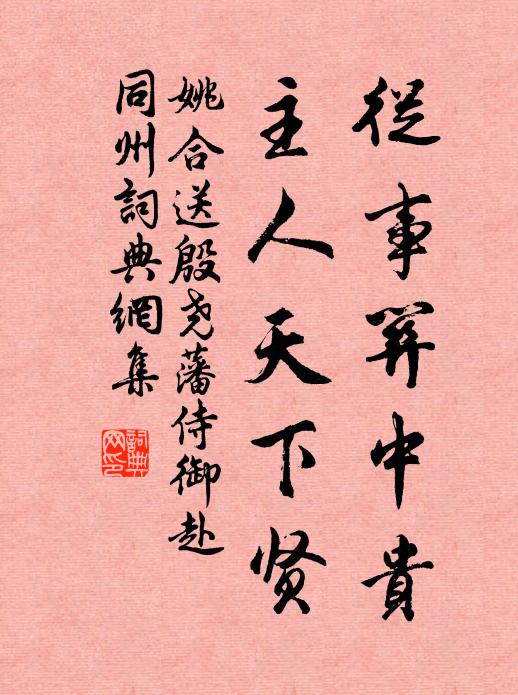 從事關中貴
主人天下贤
姚合送殷尧藩侍御赴
同州詞典網集
詞典
网印